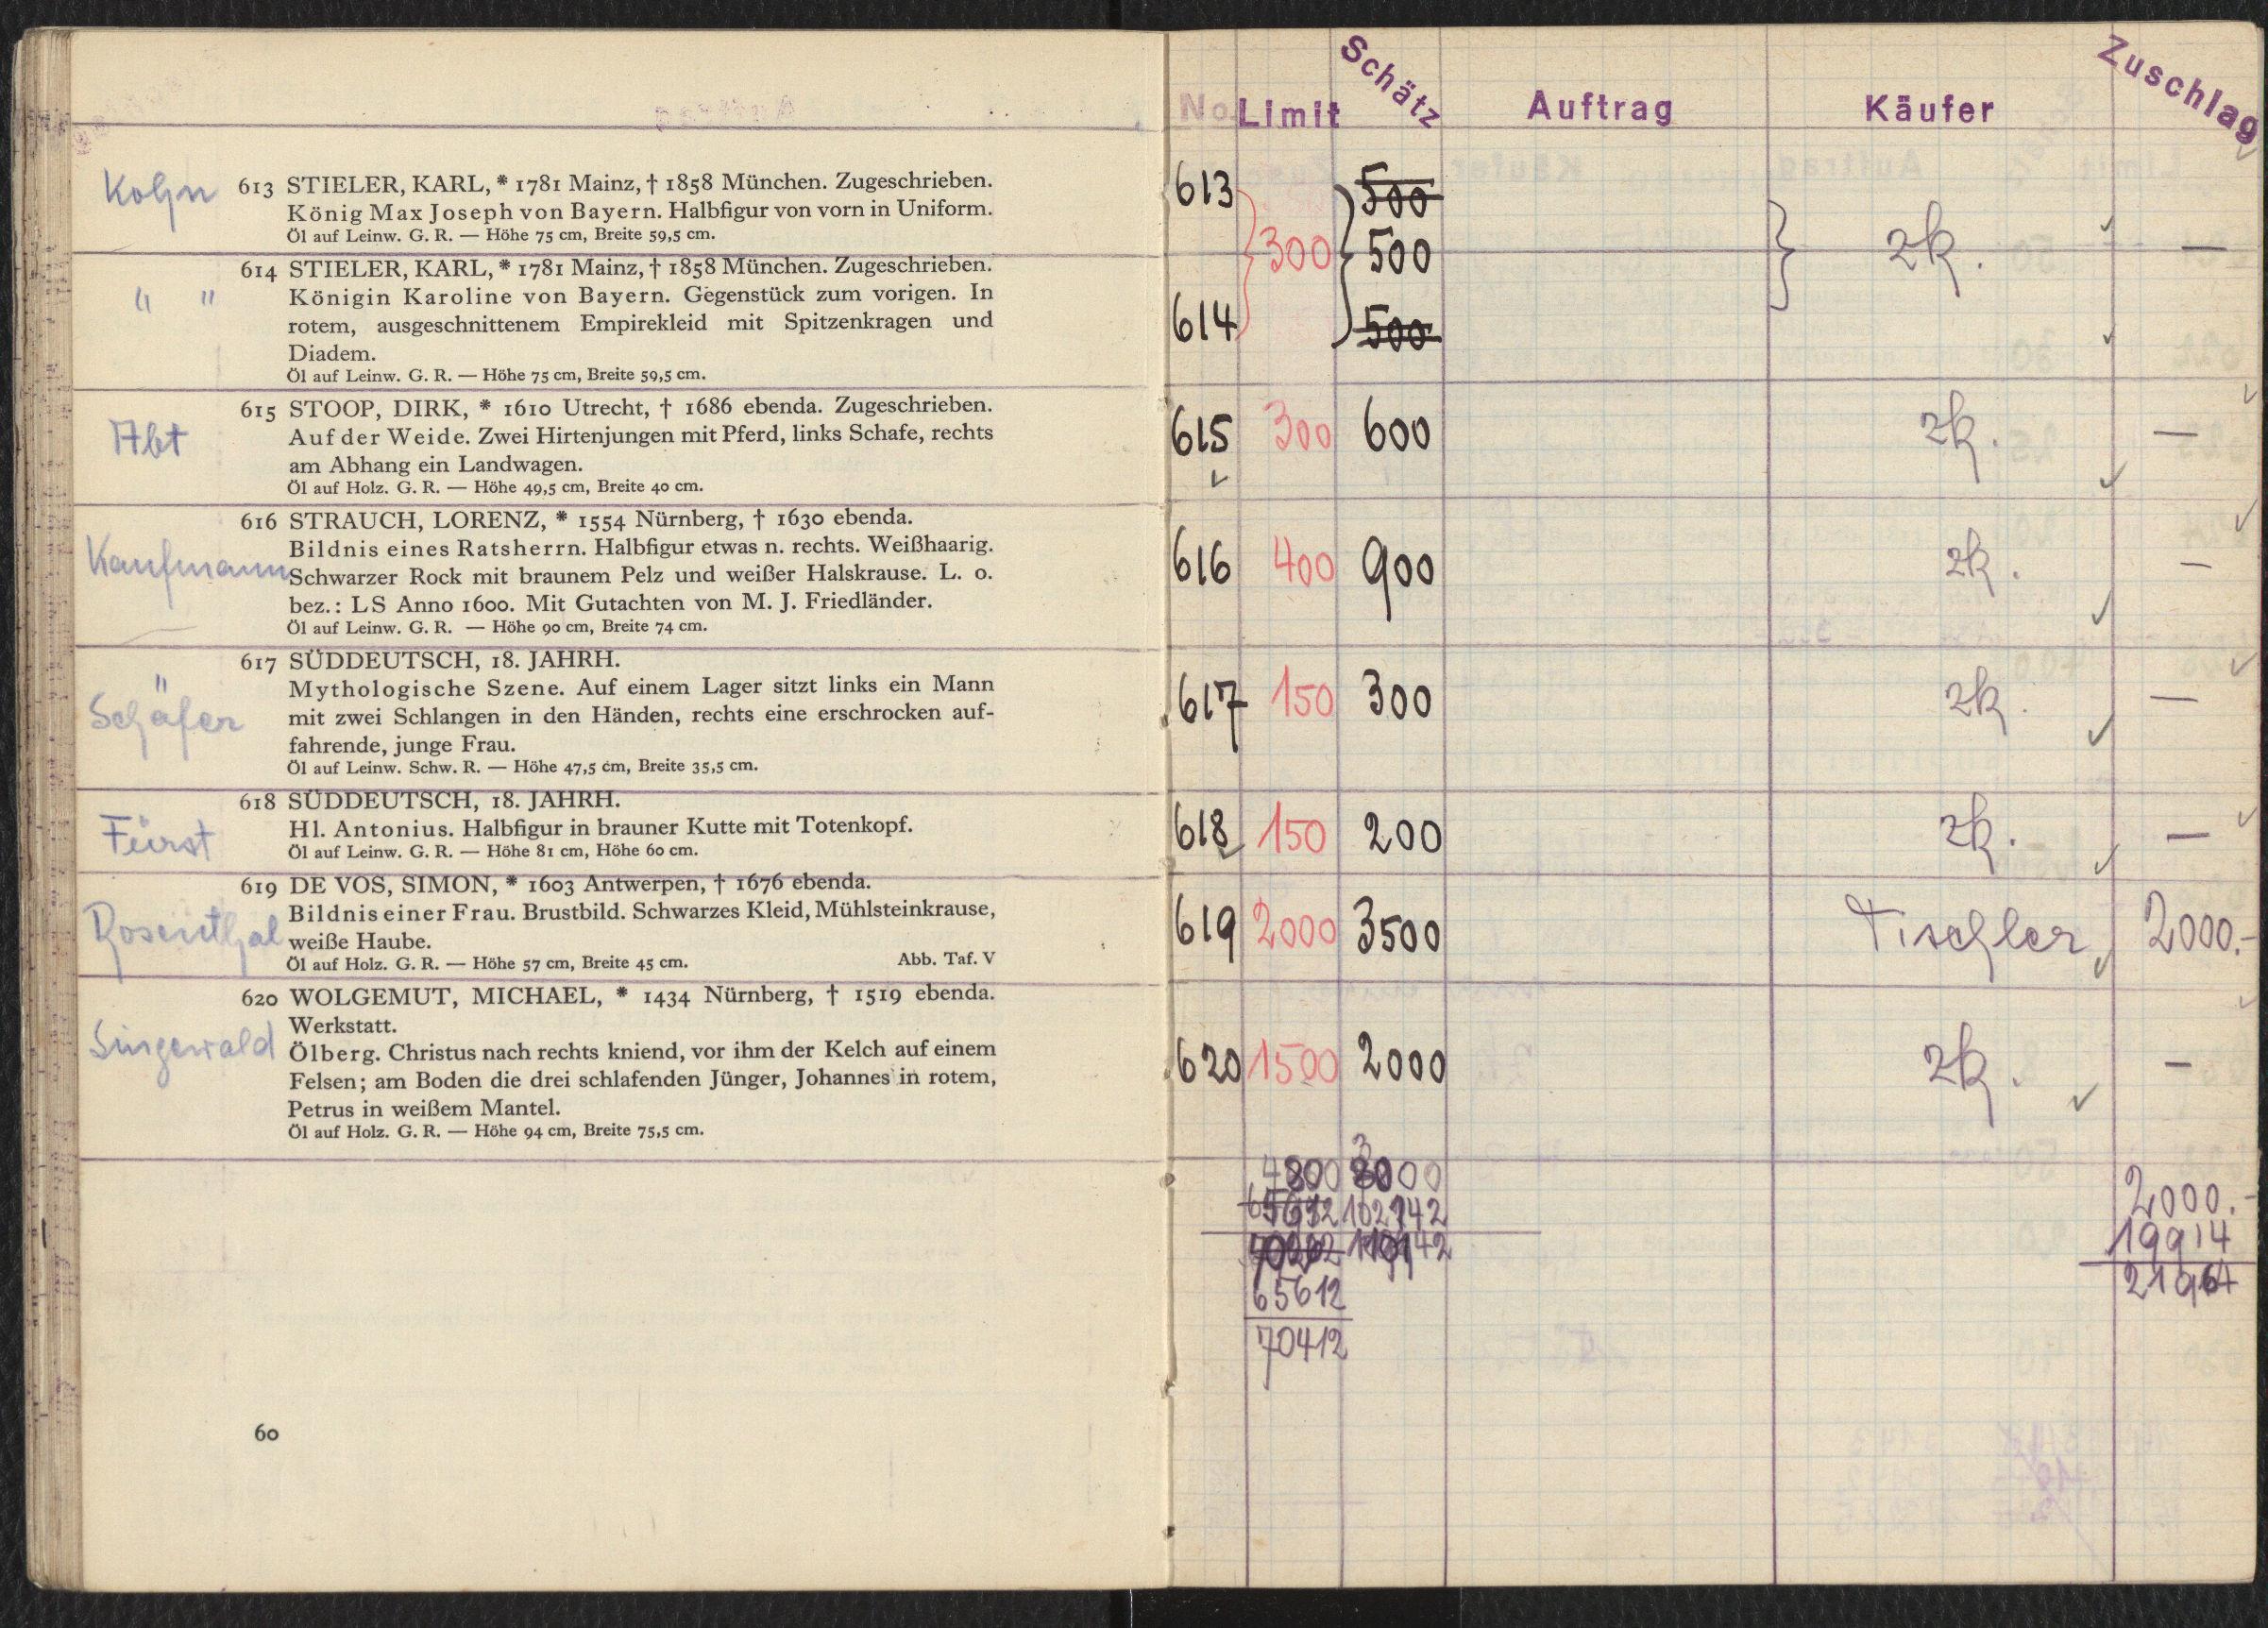 Kohn
613 STIELER, KARL, * 1781 Mainz, † 1858 München. Zugeschrieben.
König Max Joseph von Bayern. Halbfigur von vorn in Uniform.
Öl auf Leinw. G. R. — Höhe 75 cm, Breite 59,5 cm.
" "
614 STIELER, KARL, * 1781 Mainz, † 1858 München. Zugeschrieben.
Königin Karoline von Bayern. Gegenstück zum vorigen. In
rotem, ausgeschnittenem Empirekleid mit Spitzenkragen und
Diadem.
Öl auf Leinw. G. R. — Höhe 75 cm, Breite 59,5 cm.
Abt
615 STOOP, DIRK, * 1610 Utrecht, † 1686 ebenda. Zugeschrieben.
Auf der Weide. Zwei Hirtenjungen mit Pferd, links Schafe, rechts
am Abhang ein Landwagen.
Öl auf Holz. G. R. — Höhe 49,5 cm, Breite 40 cm.
Kaufmann
616 STRAUCH, LORENZ, * 1554 Nürnberg, † 1630 ebenda.
Bildnis eines Ratsherrn. Halbfigur etwas n. rechts. Weißhaarig.
Schwarzer Rock mit braunem Pelz und weißer Halskrause. L. o.
bez.: LS Anno 1600. Mit Gutachten von M. J. Friedländer.
Öl auf Leinw. G. R. — Höhe 90 cm, Breite 74 cm.
Schäfer
617 SÜDDEUTSCH, 18. JAHRH.
Mythologische Szene. Auf einem Lager sitzt links ein Mann
mit zwei Schlangen in den Händen, rechts eine erschrocken auf-
fahrende, junge Frau.
Öl auf Leinw. Schw. R. — Höhe 47,5 cm, Breite 35,5 cm.
Fürst
618 SÜDDEUTSCH, 18. JAHRH.
Hl. Antonius. Halbfigur in brauner Kutte mit Totenkopf.
Öl auf Leinw. G. R. — Höhe 81 cm, Höhe 60 cm.
Rosenthal
619 DE VOS, SIMON, * 1603 Antwerpen, † 1676 ebenda.
Bildnis einer Frau. Brustbild. Schwarzes Kleid, Mühlsteinkrause,
weiße Haube.
Öl auf Holz. G. R. — Höhe 57 cm, Breite 45 cm. Abb. Taf. V
Singewald
620 WOLGEMUT, MICHAEL, * 1434 Nürnberg, † 1519 ebenda.
Werkstatt.
Ölberg. Christus nach rechts kniend, vor ihm der Kelch auf einem
Felsen; am Boden die drei schlafenden Jünger, Johannes in rotem,
Petrus in weißem Mantel.
Öl auf Holz. G. R. — Höhe 94 cm, Breite 75,5 cm.
60
No. Limit Schätz Auftrag Käufer Zuschlag
613 500
300 500 zk. —
614 500
615 300 600 zk. —
616 400 900 zk. —
617 150 300 zk. —
618 150 200 zk. —
619 2000 3500 Tischler 2000.-
620 1500 2000 zk. —
4800 8000 2000.-
19914
65612
70412